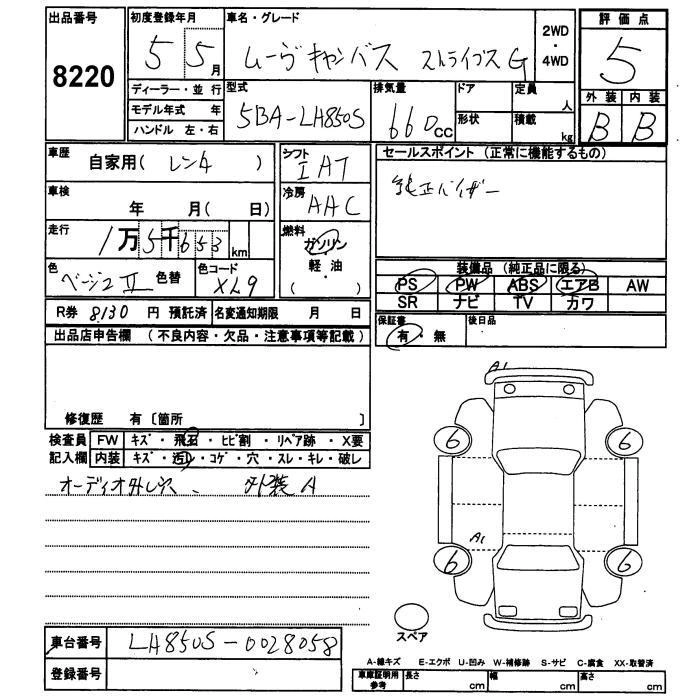 出品番号 初度登録年月 車名・グレード 評価点
8220 5 5月 ムーヴキャンバス ストライプス G 2WD・4WD 5
ディーラー・並行 型式 排気量 ドア 定員 人 外装 内装
モデル年式 年 5BA-LA850S 660cc 形状 積載 kg B B
ハンドル 左・右
車歴 自家用( レンタ ) シフト IAT セールスポイント (正常に機能するもの)
車検 年 月( 日) 冷房 AAC 純正バイザー
走行 1万5千653km 燃料 ガソリン・軽油・( )
色 ベージュII 色替 色コード XL9 装備品 (純正品に限る)
PS PW ABS エアB AW
SR ナビ TV カワ
R券 8130 円 預託済 名変通知期限 月 日 保証書 有・無 後日品
出品店申告欄 (不良内容・欠品・注意事項等記載)
修復歴 有〔箇所 〕
検査員 FW キズ・飛石・ヒビ割・リペア跡・X要
記入欄 内装 キズ・汚れ・コゲ・穴・スレ・キレ・破レ
オーディオ外し穴、 外装A
A1
6 6
A1
6 6
スペア
車台番号 LA850S-0028058
登録番号
A-線キズ E-エクボ U-凹み W-補修跡 S-サビ C-腐食 XX-取替済
車庫証明用参考 長さ cm 幅 cm 高さ cm